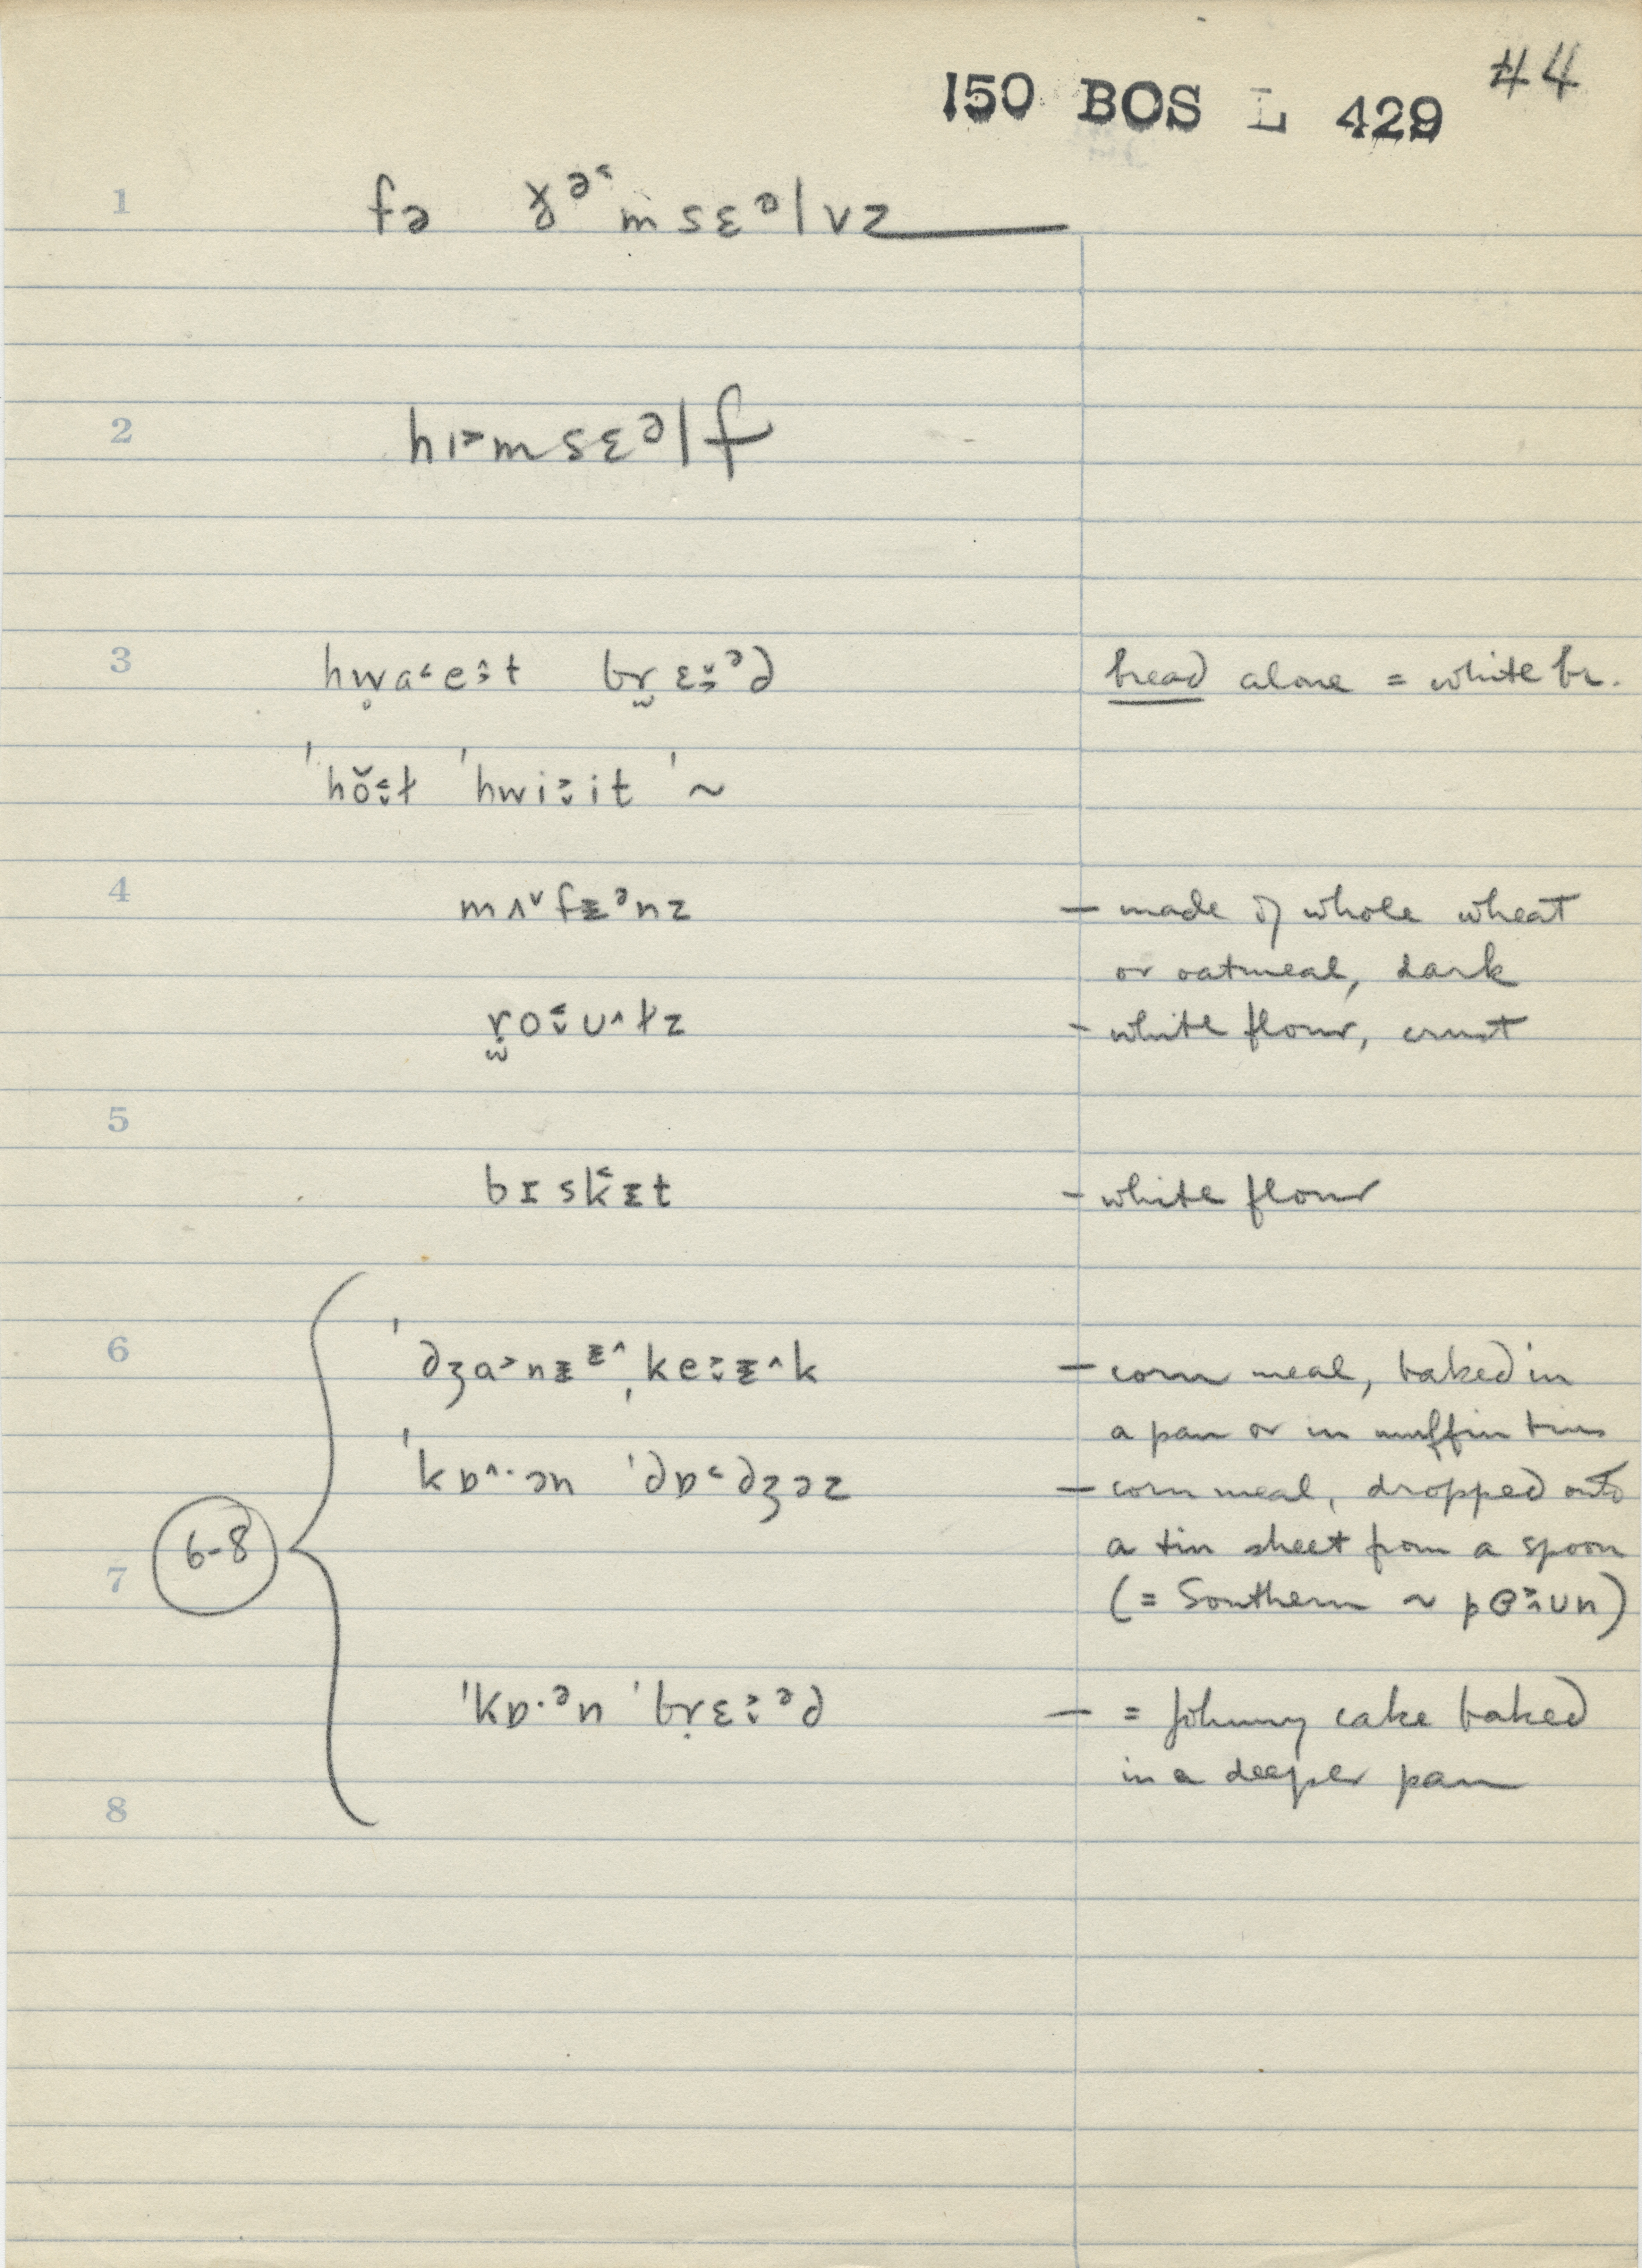 150 BOS L 429 #4
1 fə ɣ̵ᵊ˂msɛᵊlvz
2 hɪ˃msɛᵊlf
3 hw̥a˂e̝t br̰ɛ̆ᵊd bread alone = white br.
ˈhŏ˂ɫ ˈhwi˃it ˈ~
4 mʌ˅fɪ̵ᵊnz — made of whole wheat
or oatmeal, dark
r̰o˂ʊ^ɫz - white flour, crust
5
bɪsk̂ɪ̵t - white flour
6 ˈdʒa˃nɪ̵ᶤ^ˌke˃ɪ̵^k — corn meal, baked in
a pan or in muffin tins
ˈkɒ^·ən ˈdɒ˂dʒəz — corn meal, dropped onto
6-8 a tin sheet from a spoon
7 (= Southern ~ pɵ˃ʊn)
ˈkɒ·ᵊn ˈbṛɛ˃ᵊd — = Johnny cake baked
in a deeper pan
8